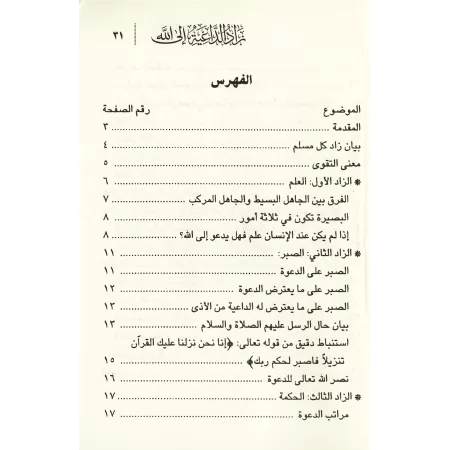 زاد الداعية إلى الله ٣١
الفهرس
الموضوع رقم الصفحة
المقدمة ........ ٣
بيان زاد كل مسلم ........ ٤
معنى التقوى ........ ٥
* الزاد الأول: العلم ........ ٦
الفرق بين الجاهل البسيط والجاهل المركب ........ ٧
البصيرة تكون في ثلاثة أمور ........ ٨
إذا لم يكن عند الإنسان علم فهل يدعو إلى الله؟ ........ ٨
* الزاد الثاني: الصبر: ........ ١١
الصبر على الدعوة ........ ١١
الصبر على ما يعترض الدعوة ........ ١٢
الصبر على ما يعترض له الداعية من الأذى ........ ١٣
بيان حال الرسل عليهم الصلاة والسلام ........ ١٣
استنباط دقيق من قوله تعالى: ﴿إنا نحن نزلنا عليك القرآن
تنزيلاً فاصبر لحكم ربك﴾ ........ ١٥
نصر الله تعالى للدعوة ........ ١٦
* الزاد الثالث: الحكمة ........ ١٧
مراتب الدعوة ........ ١٧